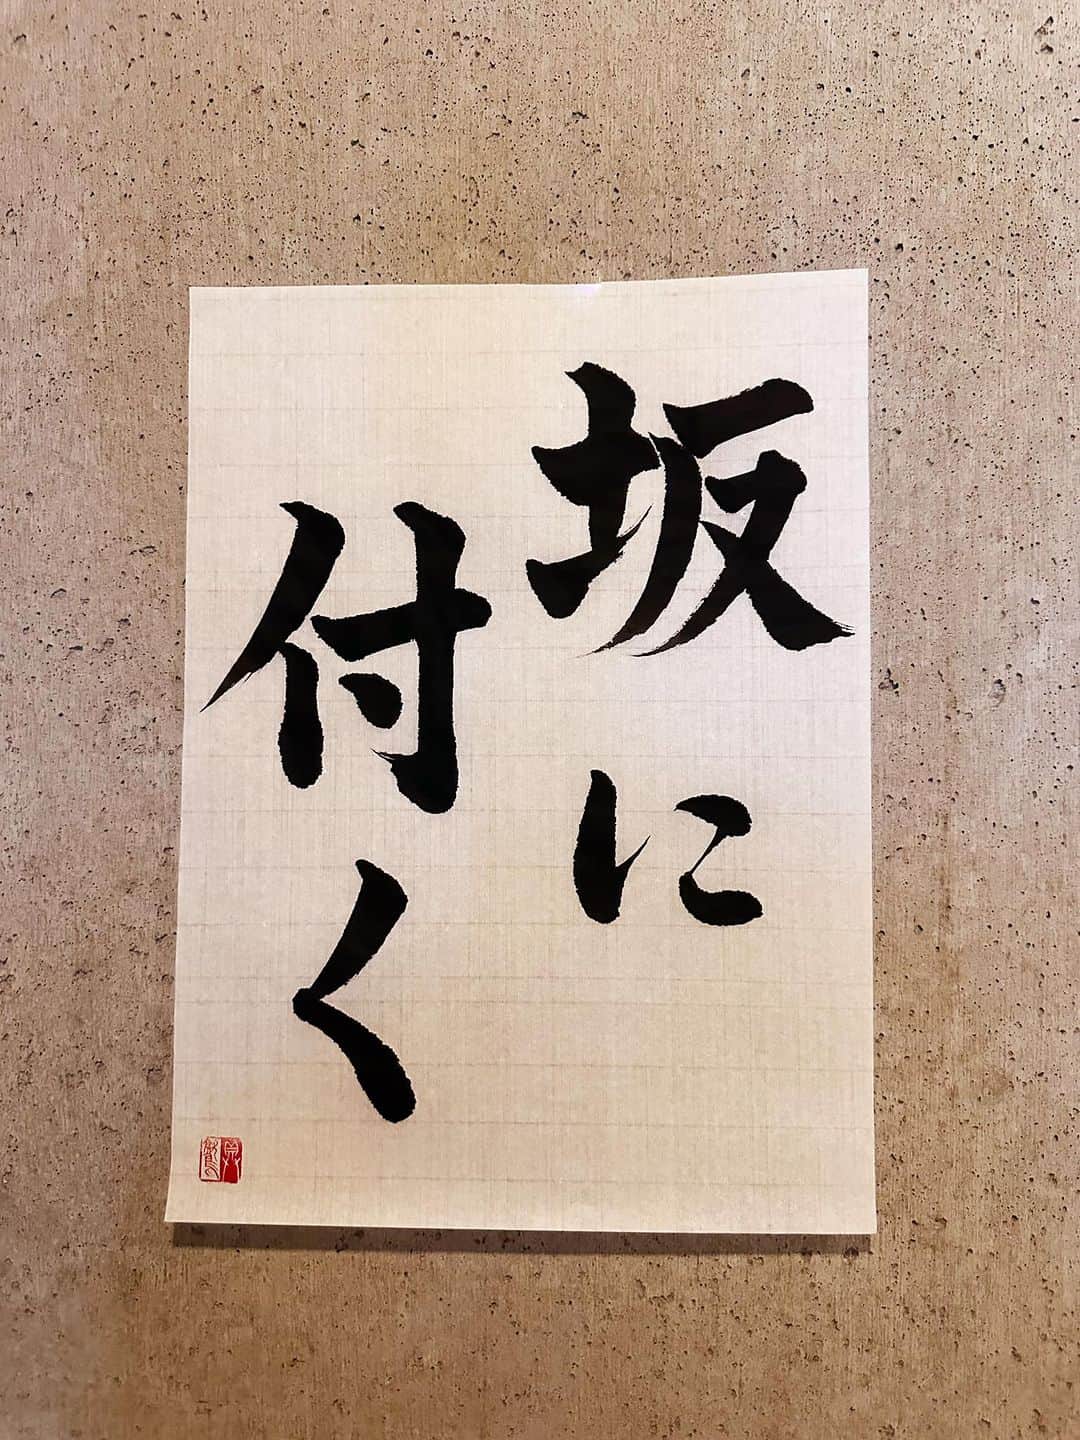 坂に
付く